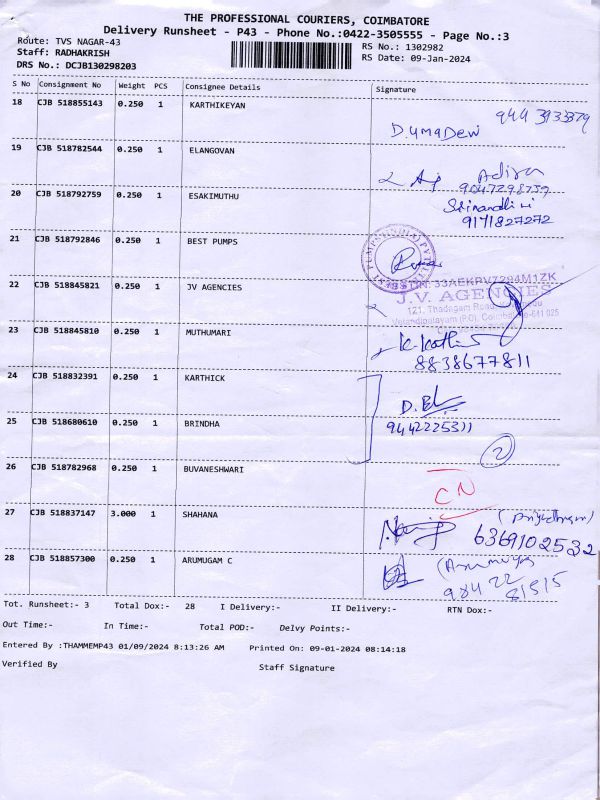 THE PROFESSIONAL COURIERS, COIMBATORE
Delivery Runsheet - P43 - Phone No.:0422-3505555 - Page No.:3
Route: TVS NAGAR-43
RS No.: 1302982
Staff: RADHAKRISH
RS Date: 09-Jan-2024
DRS No.: DCJB130298203
S No Consignment No Weight PCS Consignee Details Signature
18 CJB 518855143 0.250 1 KARTHIKEYAN
D.UMADEVI
19 CJB 518782544 0.250 1 ELANGOVAN
20 CJB 518792759 0.250 1 ESAKIMUTHU
9171827272
21 CJB 518792846 0.250 1 BEST PUMPS
22 CJB 518845821 0.250 1 JV AGENCIES
J.V. AGENCIES
121, Thadagam Road
23 CJB 518845810 0.250 1 MUTHUMARI
8838677811
24 CJB 518832391 0.250 1 KARTHICK
25 CJB 518680610 0.250 1 BRINDHA
9442225311
2
26 CJB 518782968 0.250 1 BUVANESHWARI
CN
27 CJB 518837147 3.000 1 SHAHANA
6369102532
28 CJB 518857300 0.250 1 ARUMUGAM C
98422
81515
Tot. Runsheet:- 3 Total Dox:- 28 I Delivery:- II Delivery:- RTN Dox:-
Out Time:- In Time:- Total POD:- Delvy Points:-
Entered By :THAMMEMP43 01/09/2024 8:13:26 AM Printed On: 09-01-2024 08:14:18
Verified By Staff Signature